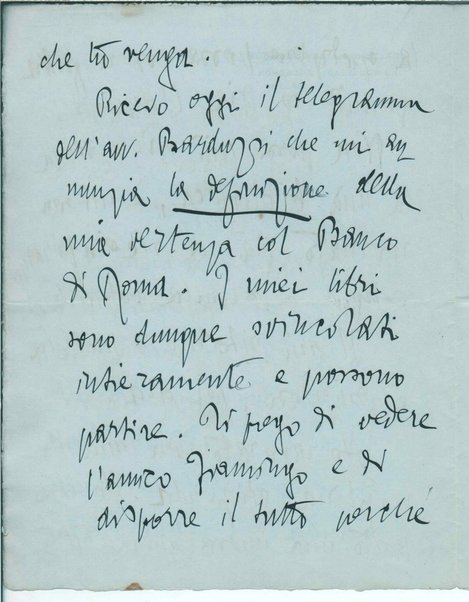 che tu venga.
Ricevo oggi il telegramma
dell'avv. Barduzzi che mi an
nunzia la definizione della
mia vertenza col Banco
di Roma. I miei libri
sono dunque svincolati
intieramente e possono
partire. Ti prego di vedere
l'amico Fiamingo e di
disporre il tutto perché